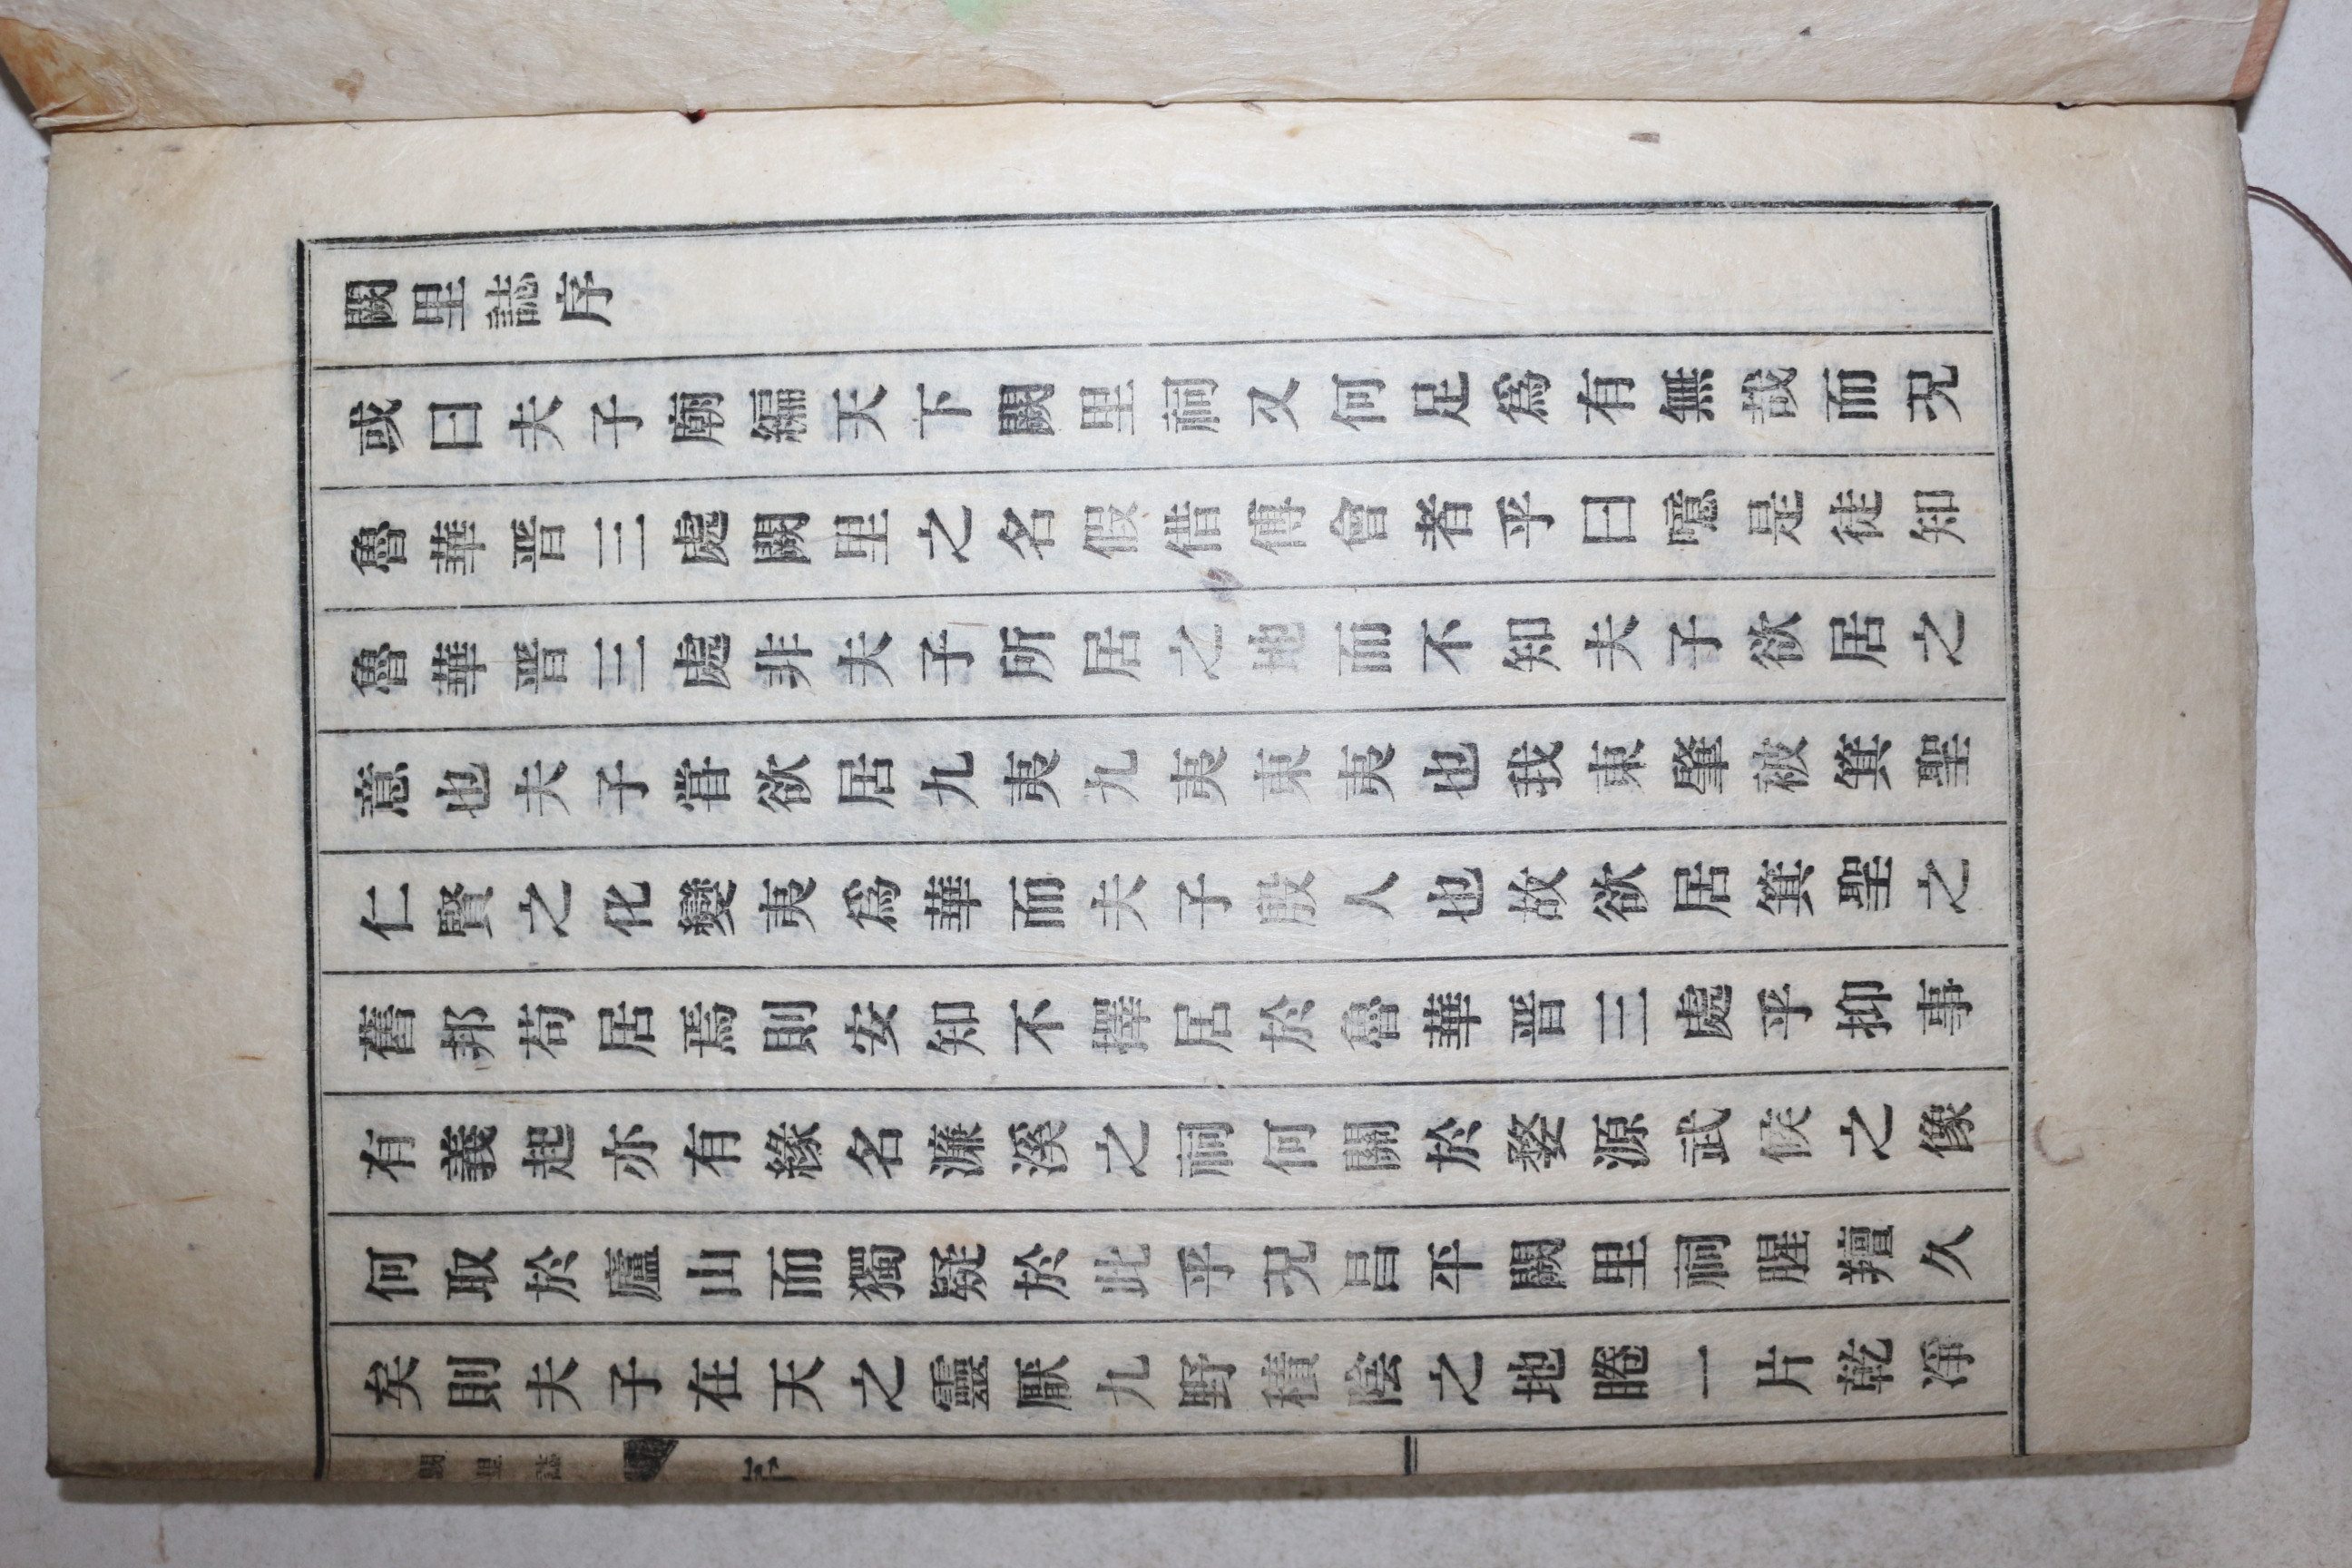 闕里誌序
或曰夫子廟編天下闕里祠又何足爲有無哉而況
魯華晋三處闕里之名假借傅會者乎曰噫是徒知
魯華晋三處非夫子所居之地而不知夫子欲居之
意也夫子甞欲居九夷九夷東夷也我東肇被箕聖
仁賢之化變夷爲華而夫子殷人也故欲居箕聖之
舊邦苟居焉則安知不擇居於魯華晋三處乎抑事
有義起亦有緣名濂溪之祠何關於婺源武候之像
何取於廬山而獨疑於此乎況昌平闕里祠腥羶久
矣則夫子在天之靈厭九野積陰之地睠一片乾凈
闕里誌
序